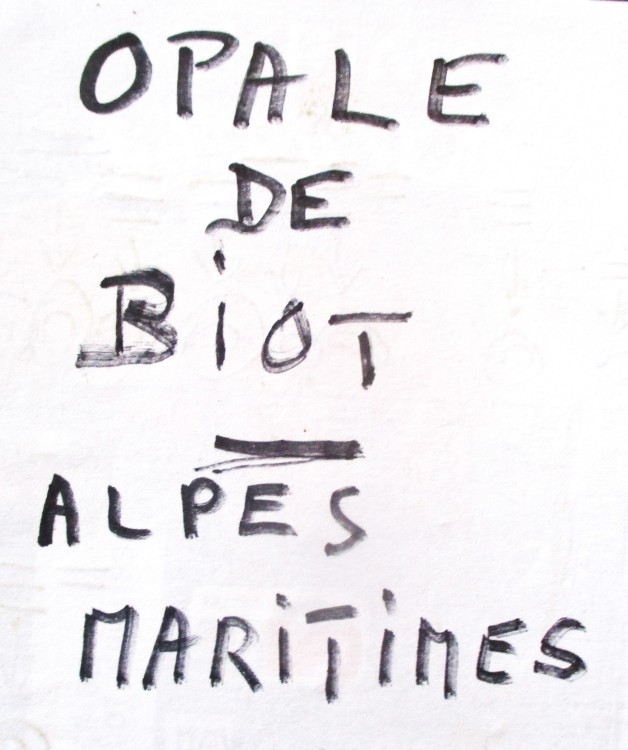 OPALE
DE
BiOT
ALPES
MARiTiMES